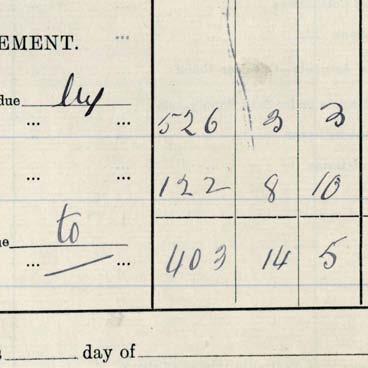 EMENT. ...
due by
... ... 526 3 3
... ... 122 8 10
to
... ... 403 14 5
day of